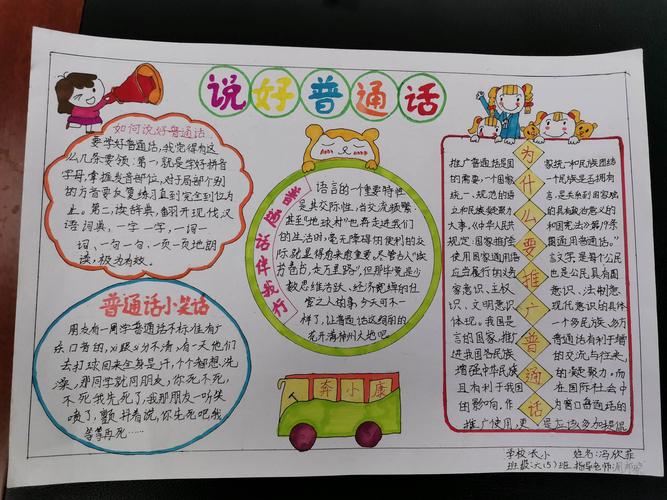 说好普通话
如何说好普通话
要学好普通话,我觉得有这
么几条要领:第一,就是学好拼音
字母,掌握发音部位,对于局部个别
的方言要反复练习直到完全到位为
止。第二,读辞典,翻开现代汉
语词典,一字一字,一词一
词、一句一句,一页一页地朗
读,极为有效。
普通话小笑话
朋友有一同学普通话不标准,有广
东口音的,义跟义分不清,有一天他们
去打球回来全身是汗,个个都想洗
澡,那同学就问朋友,你死不死,
不死我先死了,我那朋友一听笑
喷了,颤抖着说,你先死吧我
等等再死……
普通话伴我行
语言的一个重要特性
是其交际性,当交流频繁
甚至"地球村"也再走进我们
的生活时,毫无障碍和便利的交
际就显得愈来愈重要。尽管古人"城
方言古,走万里路",但那毕竟是少
数思维活跃、经济宽绰的仕
宦之人的事,今天可不一
样了,让普通话这绚丽的
花开满神州大地吧
奔小康
为什么要推广普通话
推广普通话是国
的需要,一个国家
统一、规范的语
立和民族凝聚的
大事,《中华人民共
规定:国家推广
使用国家通用语
应当履行的
意识、主权
识、文明意识
体现。我国是
言的国家,推
进我国各民族
增强中华民族
且有利于我国
的影响,作
推广使用,更
家统一和民族团结
一个民族是否拥有
言,是关系到国家独
的具有政治意义的
和国宪法》第19条
国通用普通话。"
言文字是每个公民
也是公民具有国
意识、法制意
现代意识的具体
一个多民族、多方
普通话有利于增
的交流与往来,
的凝聚力。而
在国际社会中
为窗口普通话的
是应该多加提倡
学校:长小 姓名:冯欣菲
班级:六(5)班 指导老师: